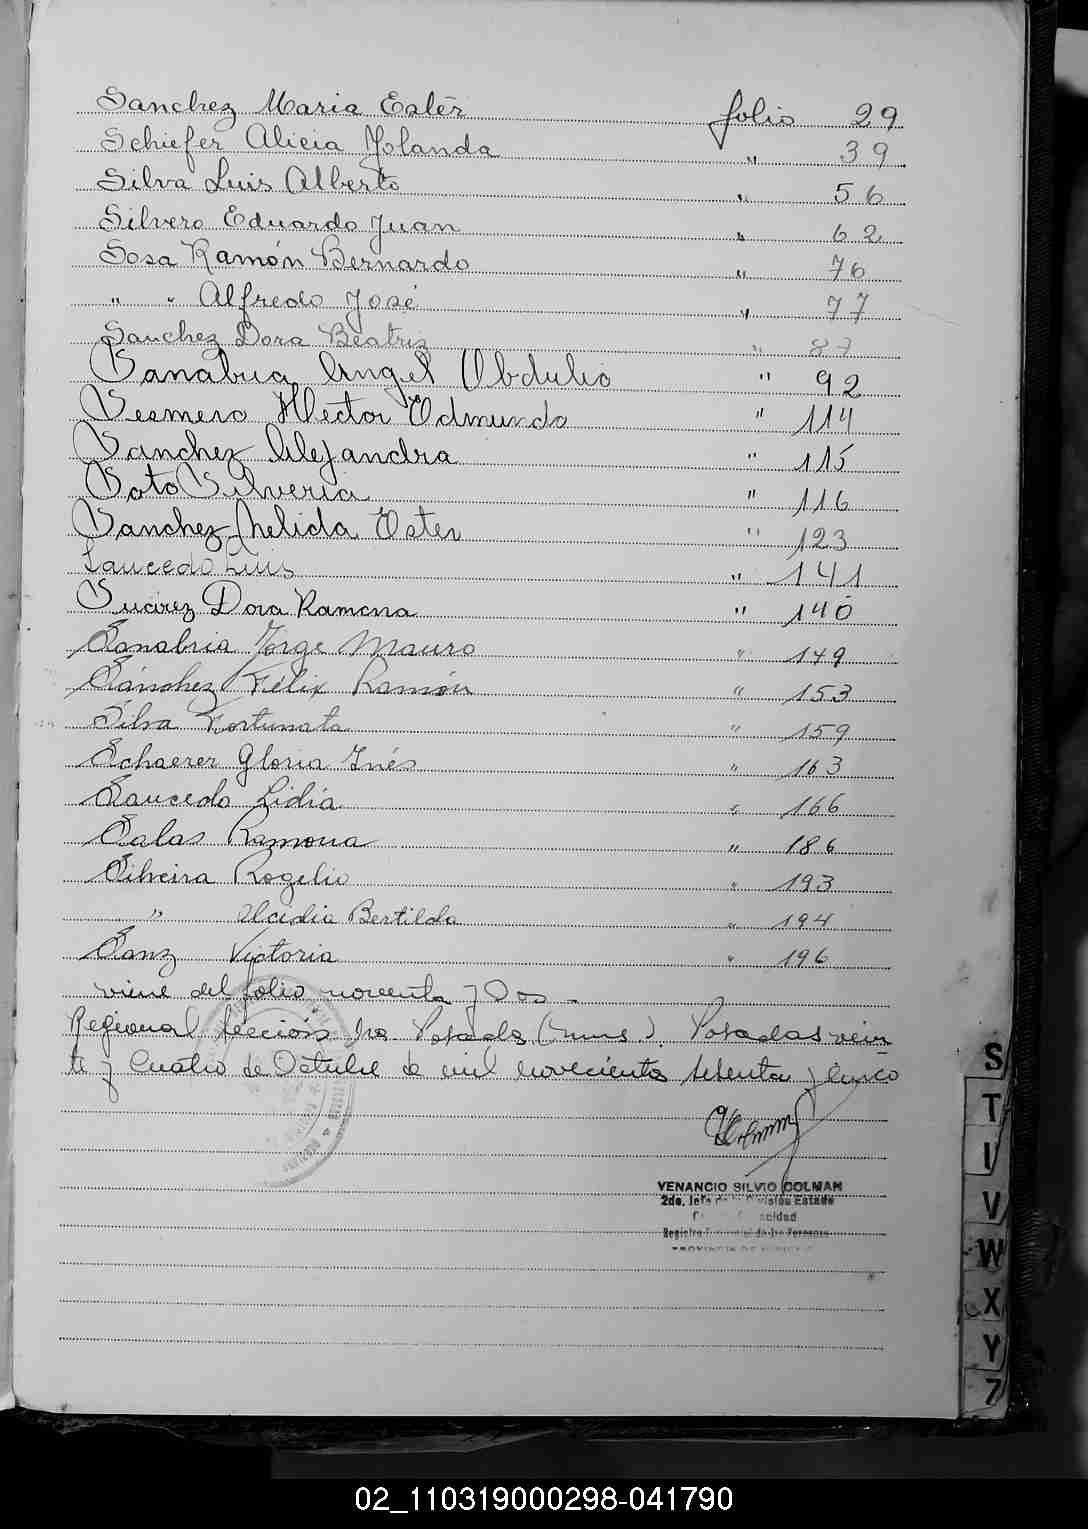 Sanchez Maria Ester folio 29
Schiefer Alicia Yolanda " 39
Silva Luis Alberto " 56
Silvero Eduardo Juan " 62
Sosa Ramón Bernardo " 76
" " Alfredo José " 77
Sanchez Dora Beatriz " 87
Sanabria Angel Obdulio " 92
Sesmero Hector Edmundo " 114
Sanchez Alejandra " 115
Soto Silveria " 116
Sanchez Nelida Ester " 123
Saucedo Luis " 141
Suárez Dora Ramona " 140
Sanabria Jorge Mauro " 149
Sánchez Félix Ramón " 153
Silva Fortunata " 159
Schaerer Gloria Inés " 163
Saucedo Lidia " 166
Salas Ramona " 186
Silveira Rogelio " 193
" Alcidia Bertilda " 194
Sanz Victoria " 196
viene del folio noventa y Dos -
Regional Sección 1ra Posadas (Mnes.). Posadas vein
te y Cuatro de Octubre de mil novecientos setenta y cinco
VENANCIO SILVIO COLMAN
2do. Jefe División Estado
Registro de las Personas
S
T
I
V
W
X
Y
Z
02_110319000298-041790